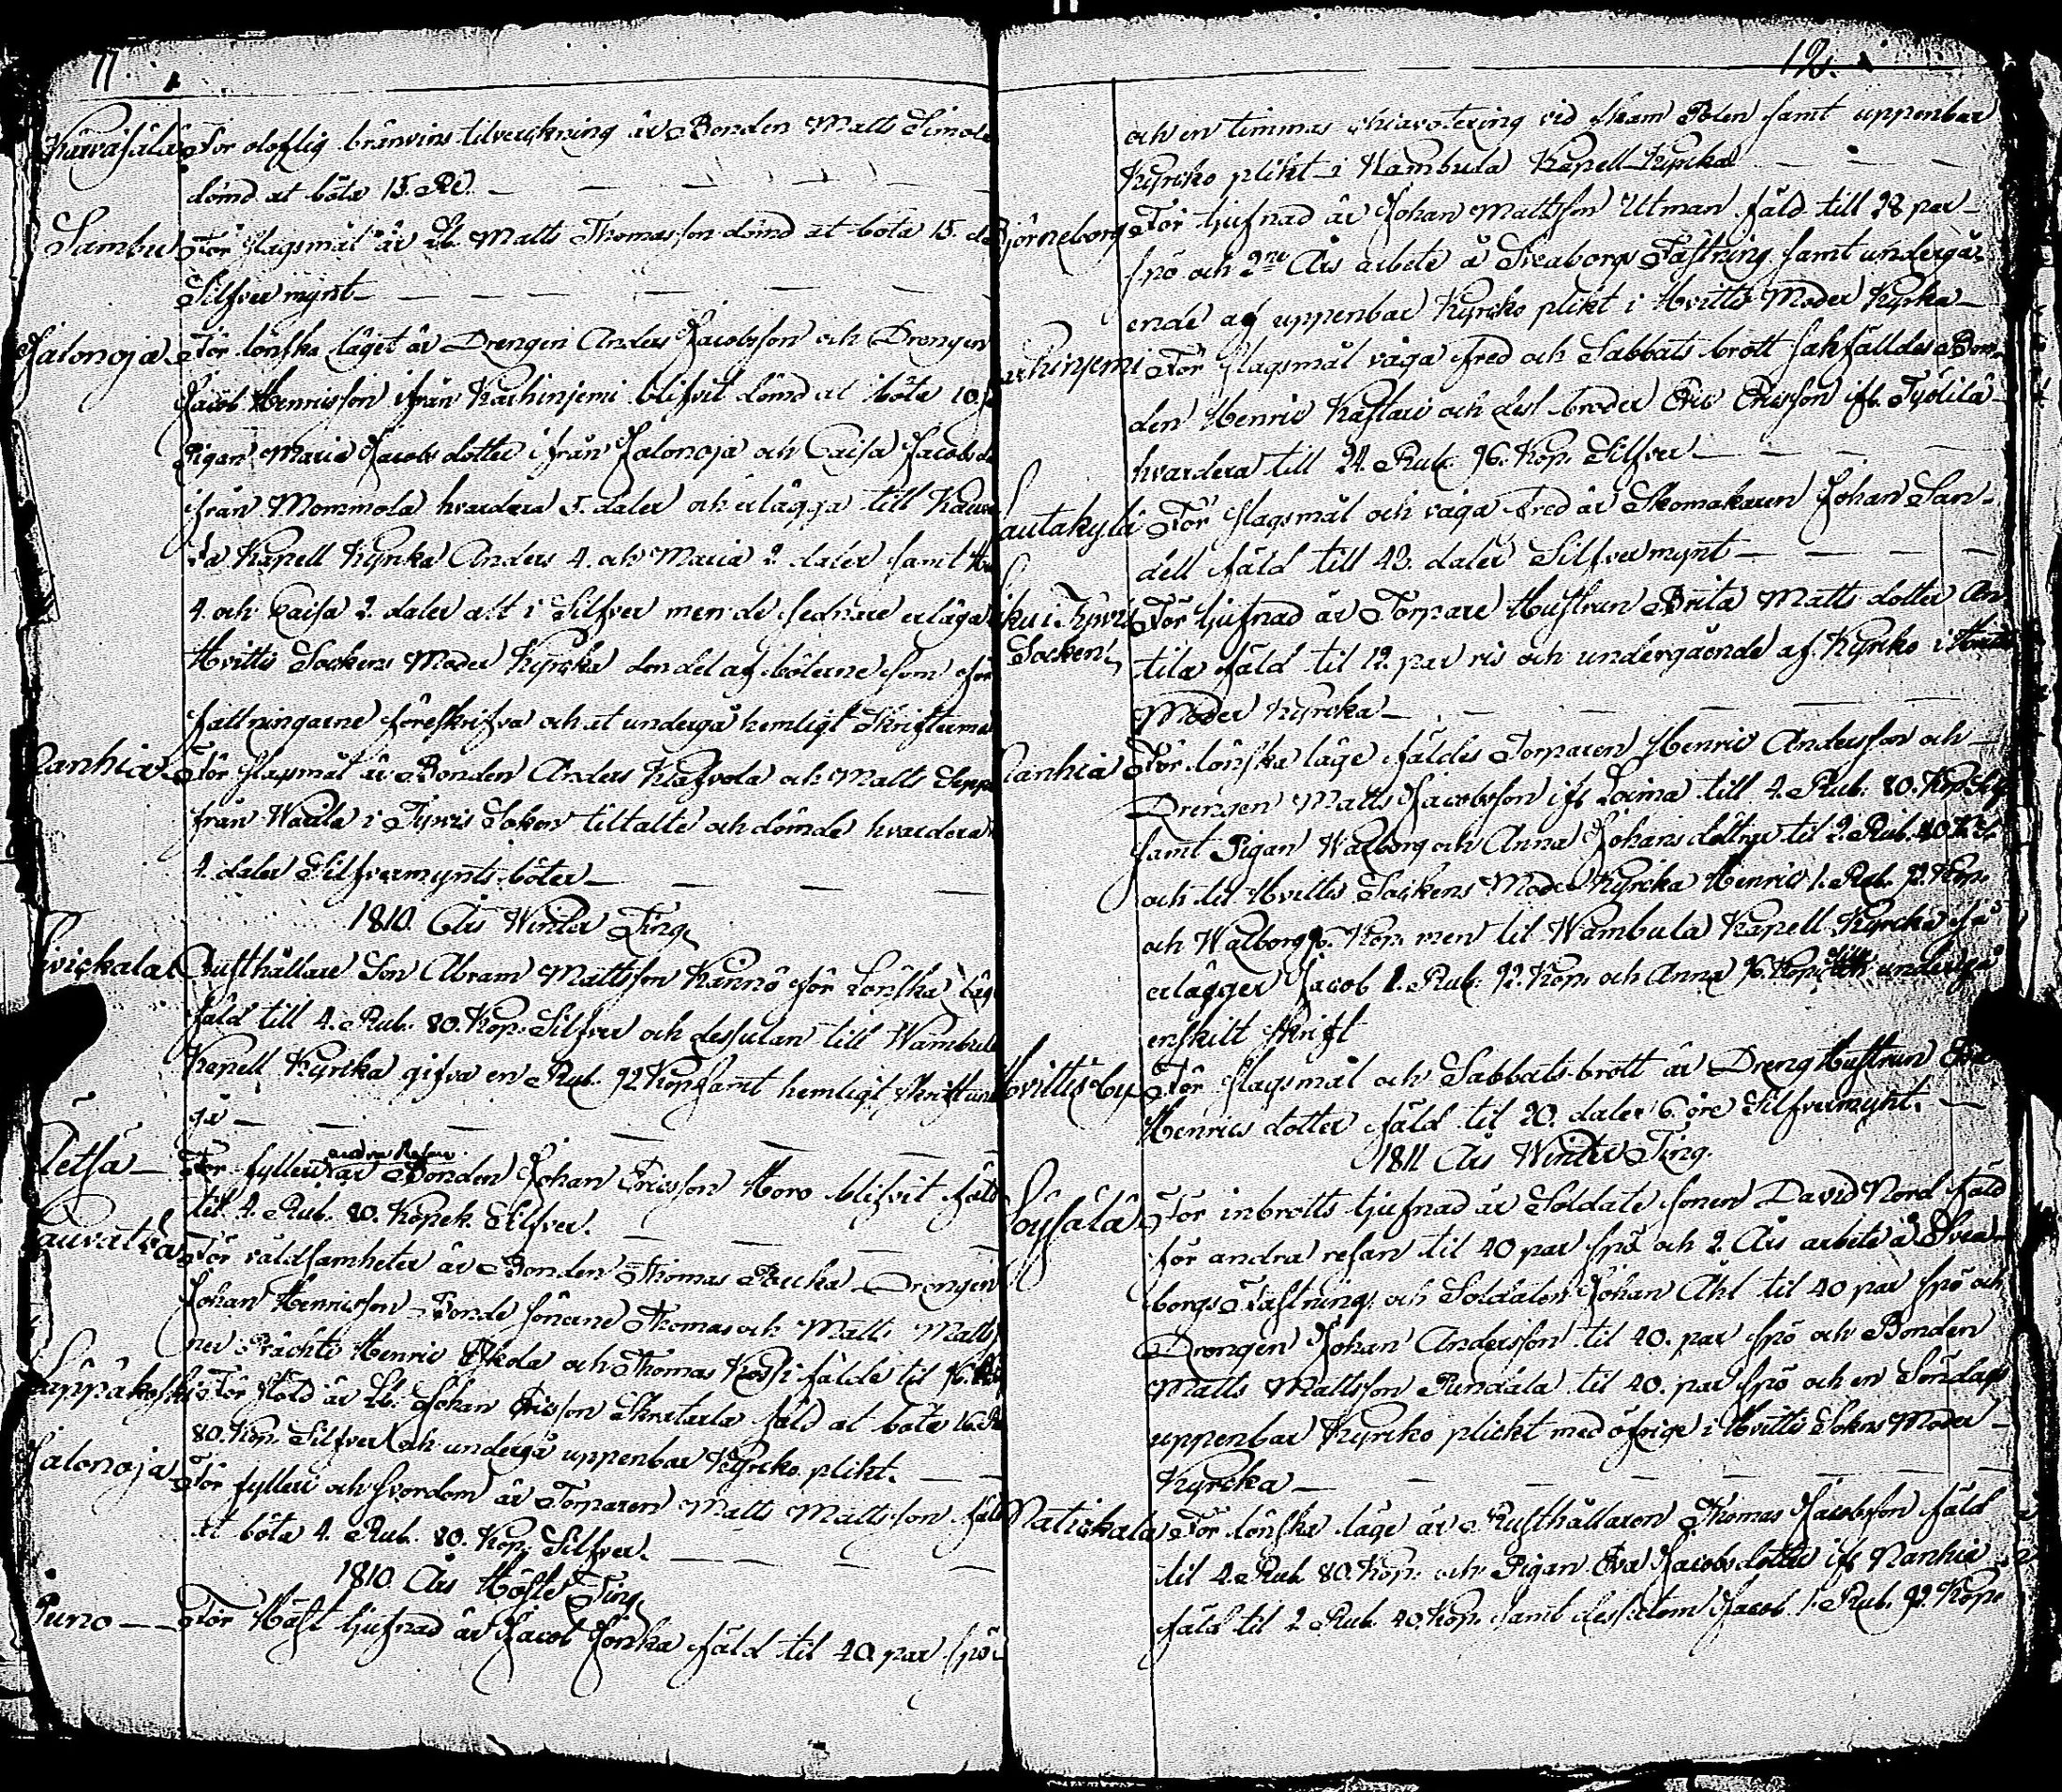 11
Karvasala För oloflig bränvins tilverckning är Bonden Matts Simola
dömd at böta 15. Rd.
Sambu För slagsmål är Lb. Matts Thomasson dömd at böta 15. d
Silfver mynt
Jalonoja För lönska läget är Drengen Anders Jacobsson och Drengen
Jacob Henricsson ifrån Karhinjemi blifvit dömd at böta 10.
Pigan Maria Jacobs dotter ifrån Jalonoja och Caisa Jacobs d
ifrån Mommola hvardera 5. daler och erlägga till Kauva
Kapell Kyrcka Anders 4. och Maria 2. daler samt
4. och Caisa 2. daler alt i Silfver men de sednare erläga
Hvittis Sockens Moder Kyrcka den del af böterne som för
fattningarne föreskrifva och at undergå hemligt Skrifterme
Ranhia För slagsmål är Bonden Anders Klafvola och Matts Sepp
från Waula i Tyrvis Soken tiltalte och dömde hvardera
4. daler Silfvermynts böter
1810. Års Winter Ting
vickala Rusthållare Son Abram Mattsson Kannö för Lönska läg
fäld till 4. Rub. 80. Kop. Silfver och dessutan till Wambula
Kapell Kyrcka gifva en Rub. 92 Kop samt hemligt skrift und
gå
Retsä För fylleri andra Resan är Bonden Johan Ericsson Horo blifvit fäld
til 4. Rub. 80. Kopek. Silfver.
Rauvatsa För våldsamheter är Bonden Thomas Rucka Drengen
Johan Henricsson Bonde sönerne Thomas och Matts Matts
ner Prächti Henric Eskola och Thomas Kossi fälde til 96.
Säppäkoski För Stöld är Lb. Johan Ericsson Skratarla fäld at böta 16.
80. Kop. Silfver och undergå uppenbar Kyrcko plikt.
Jalonoja För fylleri och svordom är Torparen Matts Mattsson fäld
at böta 4. Rub. 80. Kop. Silfver.
1810. Års Höste Ting
Puno För Häst tjufnad är Jacob Jonka fäld til 40. par spö
12.
och en timmas skiavotering vid skam Pålen samt uppenbar
Kyrcko plikt i Wambula Kapell Kyrcka
Björneborg För tjufnad är Johan Mattsson Utman fäld till 28 par
spö och 2ne Års arbete å Sveaborgs Fästning samt undergå
ende af uppenbar Kyrcko plikt i Hvittis Moder Kyrka
arhinjemi För slagsmål väga fred och Sabbats brott sakfälldes Bon
den Henric Kastari och dess broder Eric Ericsson ifr. Työlilä
hvardera till 24. Rub. 96. Kop. Silfver
autakylä För slagsmål och väga fred är Skomakaren Johan San
dell fäld till 43. daler Silfvermynt
iku i Tyrvis Socken För tjufnad är Torpare Hustrun Brita Matts dotter An
tila fäld til 12. par ris och undergående af Kyrko i
Moder Kyrcka
Ranhia För lönska läge fäldes Torparen Henric Andersson och
Drengen Matts Jacobsson ifr Loima till 4. Rub. 80. Kop Silf
samt Pigan Walborg och Anna Johans döttrar til 2. Rub. 40. K. S.
och til Hvittis Sockens Moder Kyrcka Henric 1. Rub. 92. Kop.
och Walborg 96. Kop. men til Wambula Kapell Kyrcka
erlägger Jacob 1. Rub. 92. Kop. och Anna 96. Kop. undergå
enskilt skrift
Hvittis by För slagsmål och Sabbats brott är Dreng Hustrun
Henrics dotter fäld til 20. daler 6 öre Silfvermynt.
1811 Års Winter Ting.
För inbrotts tjufnad är Soldate sonen David Nord fäld
för andra resan til 40 par spö och 2. Års arbete å Svea
borgs Fästning, och Soldaten Johan Ahl til 40 par spö och
Drengen Johan Andersson til 40. par spö och Bonden
Matts Mattsson Pundala til 40. par spö och en Söndags
uppenbar Kyrcko plickt med öfrige i Hvittis Sokns Moder
Kyrcka
Matickala För lönska läge är Rusthållaren Thomas Jacobsson fäld
til 4. Rub. 80. Kop. och Pigan Eva Jacobs dotter ifr Nanhia
fäld til 2. Rub. 40. Kop. samt dessutom Jacob 1. Rub. 92. Kop.